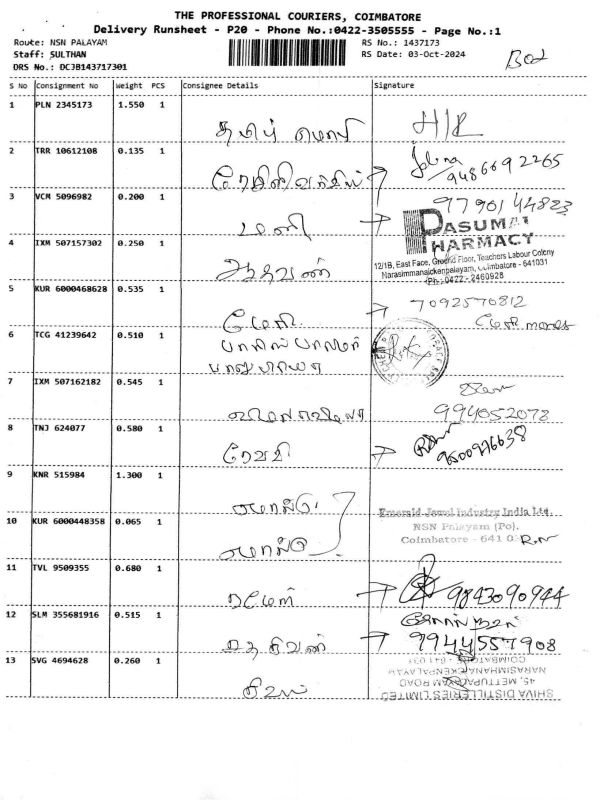 THE PROFESSIONAL COURIERS, COIMBATORE
Delivery Runsheet - P20 - Phone No.:0422-3505555 - Page No.:1
Route: NSN PALAYAM RS No.: 1437173
Staff: SULTHAN RS Date: 03-Oct-2024
DRS No.: DCJB143717301
S No Consignment No Weight PCS Consignee Details Signature
1 PLN 2345173 1.550 1
தமிழ் H/R
2 TRR 10612108 0.135 1
9486692265
3 VCM 5096982 0.200 1 9790144823
மணி PASUMAI PHARMACY
4 IXM 507157302 0.250 1
ஆதவன் 12/1B, East Face, Ground Floor, Teachers Labour Colony
Narasimmanaickenpalayam, Coimbatore - 641031
Ph: 0422 - 2460928
5 KUR 6000468628 0.535 1 7092576812
6 TCG 41239642 0.510 1
7 IXM 507162182 0.545 1
994052078
8 TNJ 624077 0.580 1
ரேவதி 9500976638
9 KNR 515984 1.300 1
Emerald Jewel Industry India Ltd.
10 KUR 6000448358 0.065 1 NSN Palayam (Po).
Coimbatore - 641 0
11 TVL 9509355 0.680 1
ரமேஸ் 9843090944
12 SLM 355681916 0.515 1
9944557908
13 SVG 4694628 0.260 1
SHIVA DISTILLERIES LIMITED
45, METTUPALAYAM ROAD
NARASIMHANAICKENPALAYAM
COIMBATORE - 641 031